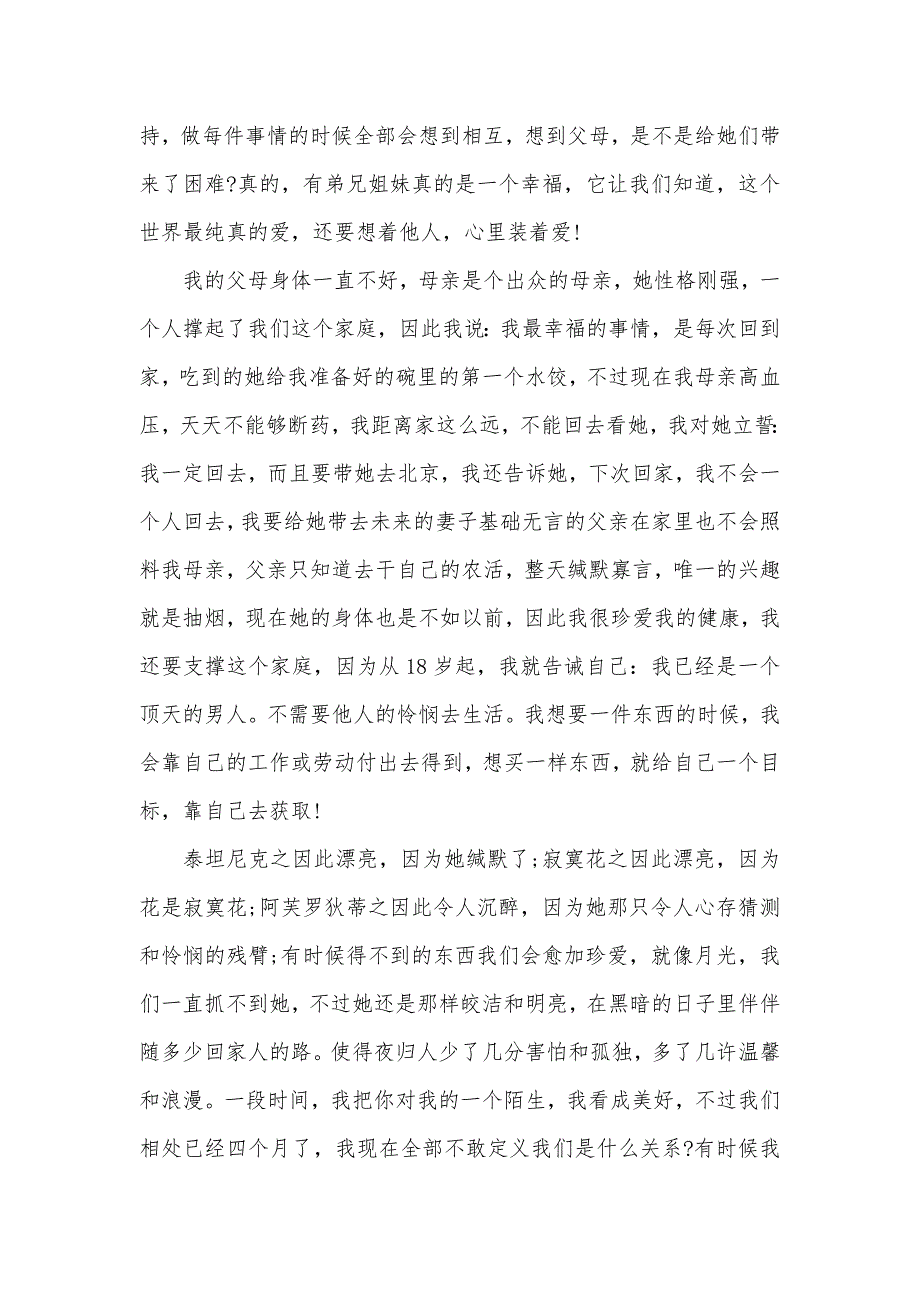 持，做每件事情的时候全部会想到相互，想到父母，是不是给她们带
来了困难?真的，有弟兄姐妹真的是一个幸福，它让我们知道，这个
世界最纯真的爱，还要想着他人，心里装着爱!
我的父母身体一直不好，母亲是个出众的母亲，她性格刚强，一
个人撑起了我们这个家庭，因此我说：我最幸福的事情，是每次回到
家，吃到的她给我准备好的碗里的第一个水饺，不过现在我母亲高血
压，天天不能够断药，我距离家这么远，不能回去看她，我对她立誓：
我一定回去，而且要带她去北京，我还告诉她，下次回家，我不会一
个人回去，我要给她带去未来的妻子基础无言的父亲在家里也不会照
料我母亲，父亲只知道去干自己的农活，整天缄默寡言，唯一的兴趣
就是抽烟，现在她的身体也是不如以前，因此我很珍爱我的健康，我
还要支撑这个家庭，因为从 18 岁起，我就告诫自己：我已经是一个
顶天的男人。不需要他人的怜悯去生活。我想要一件东西的时候，我
会靠自己的工作或劳动付出去得到，想买一样东西，就给自己一个目
标，靠自己去获取!
泰坦尼克之因此漂亮，因为她缄默了;寂寞花之因此漂亮，因为
花是寂寞花;阿芙罗狄蒂之因此令人沉醉，因为她那只令人心存猜测
和怜悯的残臂;有时候得不到的东西我们会愈加珍爱，就像月光，我
们一直抓不到她，不过她还是那样皎洁和明亮，在黑暗的日子里伴伴
随多少回家人的路。使得夜归人少了几分害怕和孤独，多了几许温馨
和浪漫。一段时间，我把你对我的一个陌生，我看成美好，不过我们
相处已经四个月了，我现在全部不敢定义我们是什么关系?有时候我